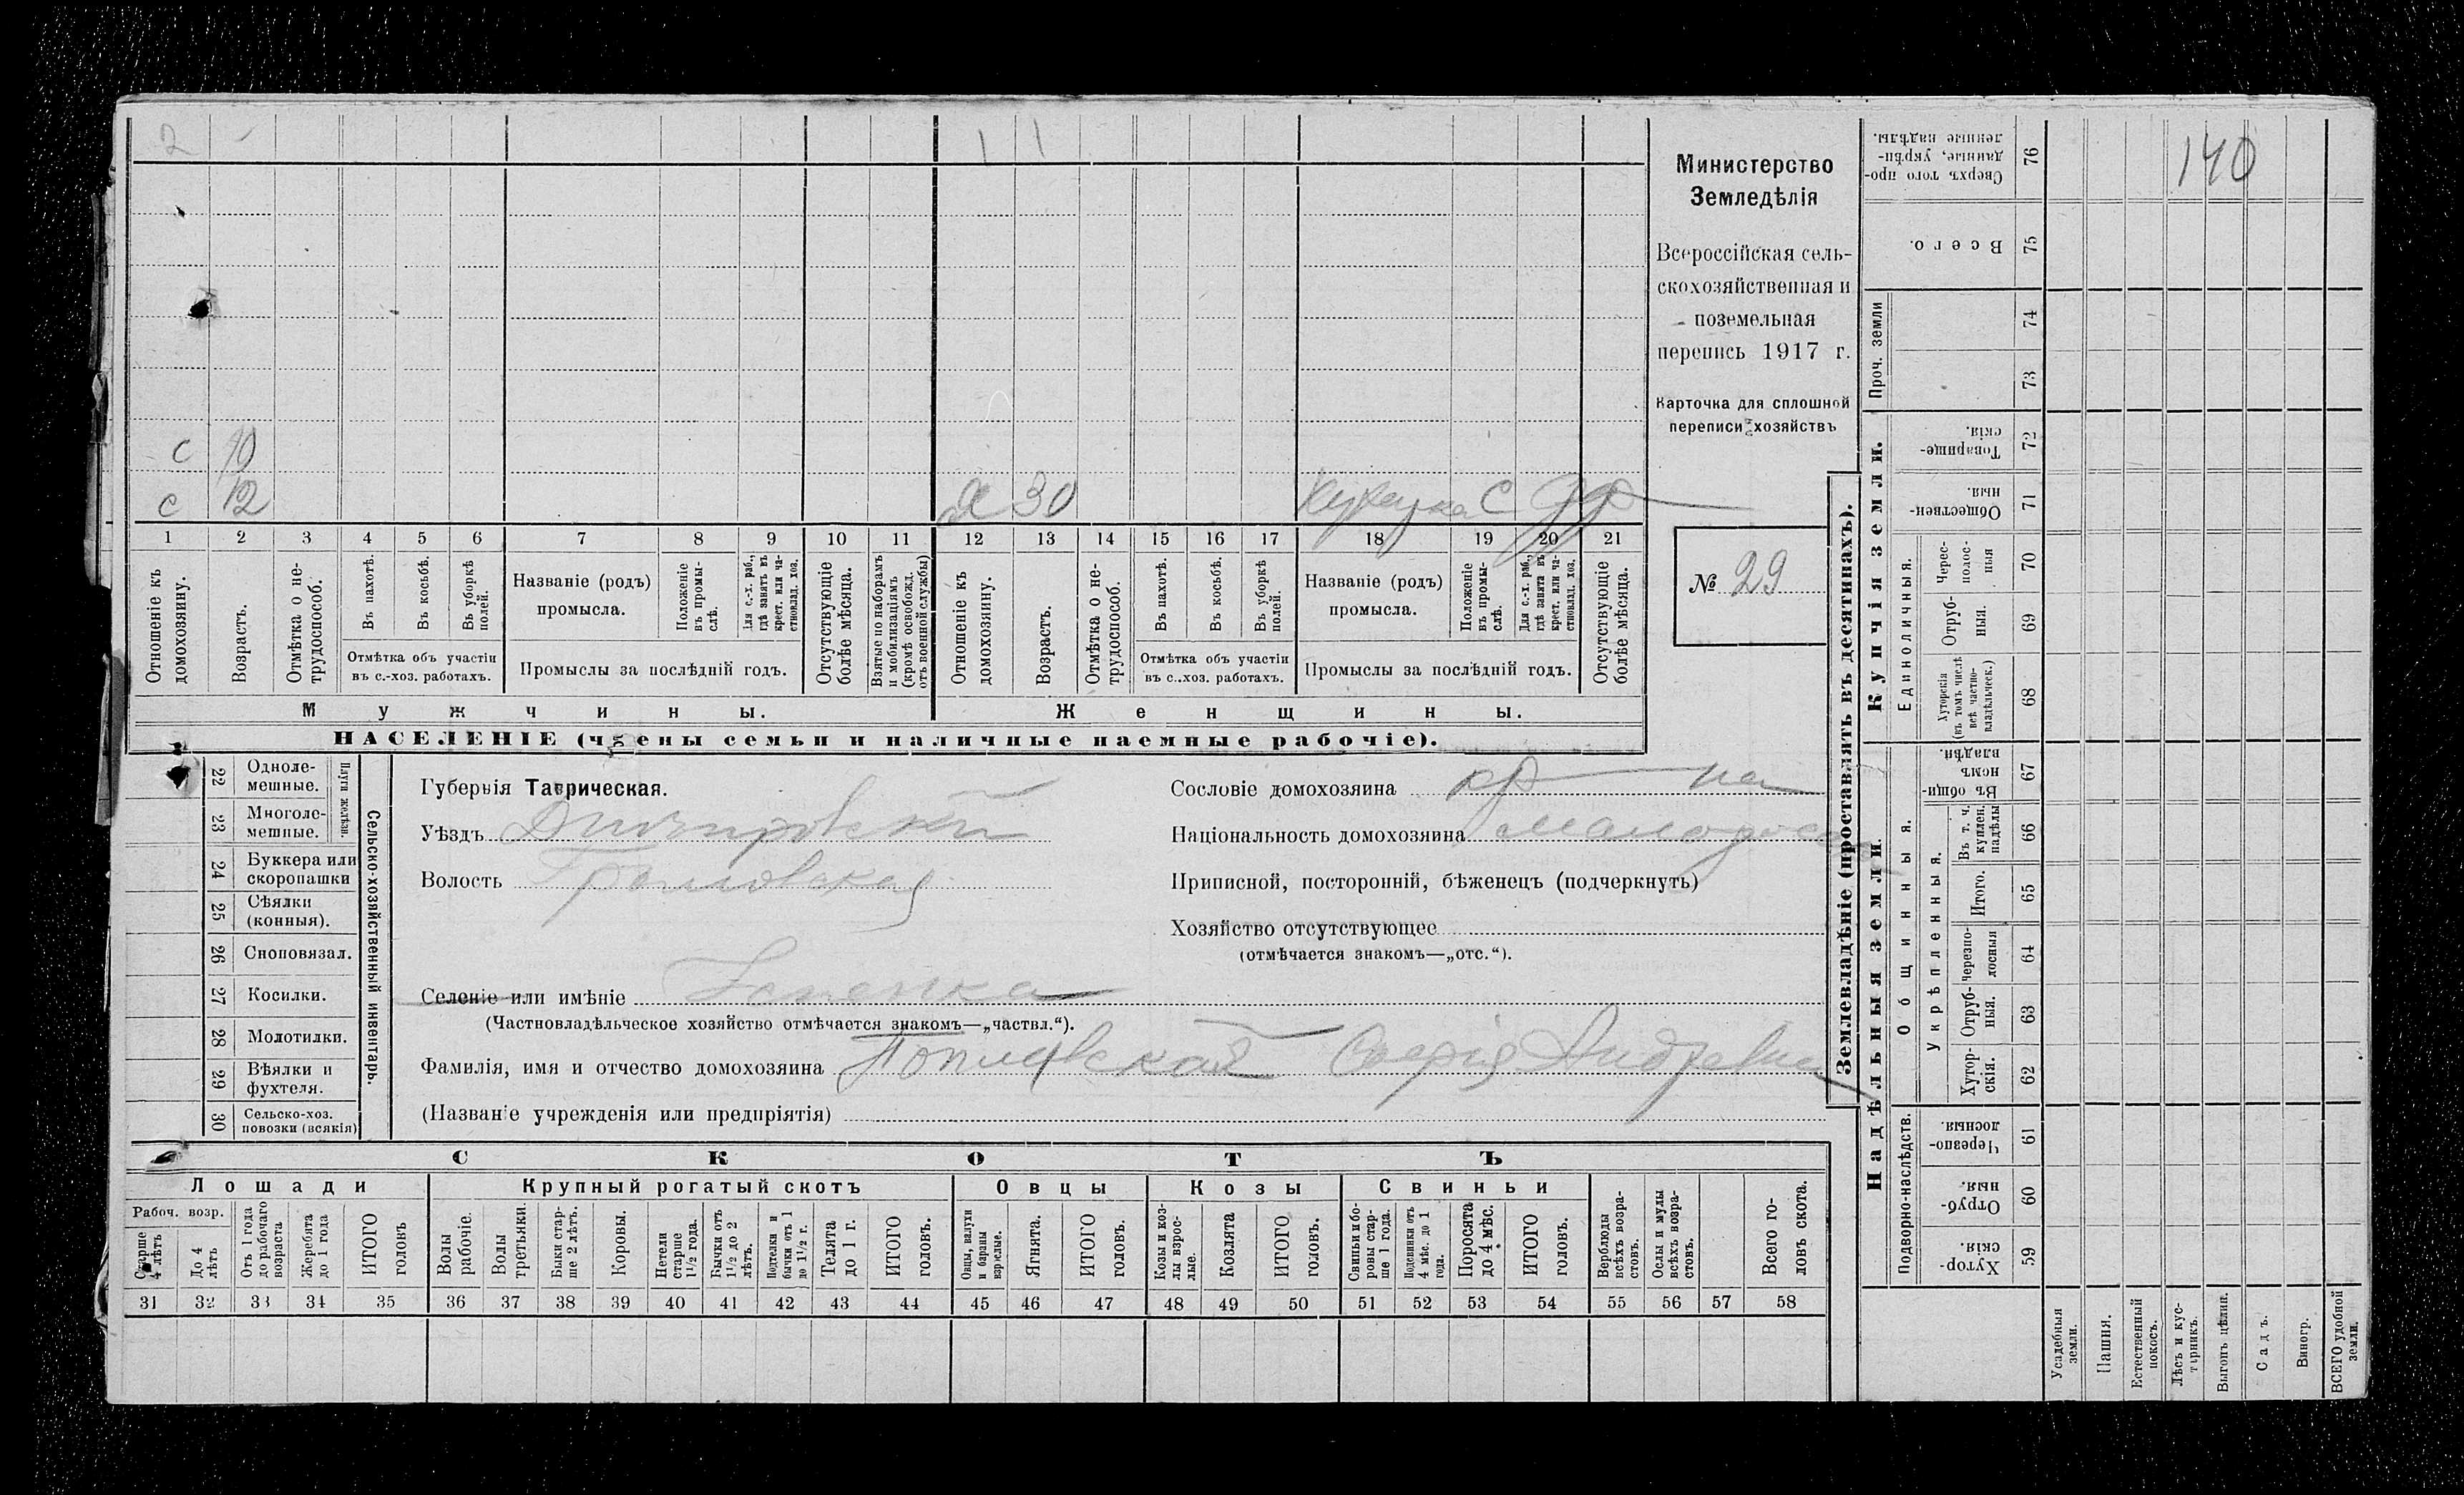 2 - 1 1
140
Министерство
Земледѣлія
Всероссійская сель-
скохозяйственная и
поземельная
перепись 1917 г.
Карточка для сплошной
переписи хозяйствъ
№ 29
с 10
с 12 Я 30 С
1 2 3 4 5 6 7 8 9 10 11 12 13 14 15 16 17 18 19 20 21
Отношеніе къ домохозяину.
Возрастъ.
Отмѣтка о не-трудоспособ.
Въ пахотѣ.
Въ косьбѣ.
Въ уборкѣ полей.
Отмѣтка объ участіи
въ с.-хоз. работахъ.
Названіе (родъ)
промысла.
Положеніе въ промы-слѣ.
Для с.-х. раб., гдѣ занятъ въ крест. или ча-стновлад. хоз.
Промыслы за послѣдній годъ.
Отсутствующіе болѣе мѣсяца.
Взятые по наборамъ и мобилизаціямъ (кромѣ освобожд. отъ военной службы)
Отношеніе къ домохозяину.
Возрастъ.
Отмѣтка о не-трудоспособ.
Въ пахотѣ.
Въ косьбѣ.
Въ уборкѣ полей.
Отмѣтка объ участіи
въ с.-хоз. работахъ.
Названіе (родъ)
промысла.
Положеніе въ промы-слѣ.
Для с.-х. раб., гдѣ занята въ крест. или ча-стновлад. хоз.
Промыслы за послѣдній годъ.
Отсутствующіе болѣе мѣсяца.
Мужчины. Женщины.
НАСЕЛЕНІЕ (члены семьи и наличные наемные рабочіе).
Сельско-хозяйственный инвентарь.
Плуги желѣзн.
22 Одноле-мешные.
23 Многоле-мешные.
24 Буккера или скоропашки
25 Сѣялки (конныя).
26 Сноповязал.
27 Косилки.
28 Молотилки.
29 Вѣялки и фухтеля.
30 Сельско-хоз. повозки (всякія)
Губернія Таврическая.
Уѣздъ Днѣпровскій
Волость
Селеніе или имѣніе
(Частновладѣльческое хозяйство отмѣчается знакомъ—„частвл.“).
Фамилія, имя и отчество домохозяина Поплавская Софія Андреевна
(Названіе учрежденія или предпріятія)
Сословіе домохозяина кр-на
Національность домохозяина малоросс
Приписной, посторонній, бѣженецъ (подчеркнуть)
Хозяйство отсутствующее
(отмѣчается знакомъ—„отс.“).
СКОТЪ
Лошади Крупный рогатый скотъ Овцы Козы Свиньи
Рабоч. возр.
Старше 4 лѣтъ
До 4 лѣтъ
Отъ 1 года до рабочаго возраста
Жеребята до 1 года
ИТОГО головъ
Волы рабочіе.
Волы третьяки.
Быки стар-ше 2 лѣтъ.
Коровы.
Нетели старше 1½ года.
Бычки отъ 1½ до 2 лѣтъ.
Подтелки и бычки отъ 1 до 1½ г.
Телята до 1 г.
ИТОГО головъ.
Овцы, валухи и бараны взрослые.
Ягнята.
ИТОГО головъ.
Козы и коз-лы взрос-лые.
Козлята
ИТОГО головъ.
Свиньи и бо-ровы стар-ше 1 года.
Подсвинки отъ 4 мѣс. до 1 года.
Поросята до 4 мѣс.
ИТОГО головъ.
Верблюды всѣхъ возра-стовъ.
Ослы и мулы всѣхъ возра-стовъ.
Всего го-ловъ скота.
31 32 33 34 35 36 37 38 39 40 41 42 43 44 45 46 47 48 49 50 51 52 53 54 55 56 57 58
Землевладѣніе (проставлять въ десятинахъ).
Купчія земли.
Надѣльныя земли.
Сверхъ того про-данные, укрѣп-ленные надѣлы. 76
Всего. 75
Проч. земли
74
73
Товарище-скія. 72
Обществен-ныя. 71
Единоличныя.
Черес-полос-ныя 70
Отруб-ныя. 69
Хуторскія (въ томъ числѣ всѣ частно-владѣльческ.) 68
Общинныя.
Въ общи-номъ владѣн. 67
Укрѣпленныя.
Въ т. ч. куплен. надѣлы 66
Итого. 65
Черезпо-лосныя 64
Отруб-ныя. 63
Хутор-скія. 62
Подворно-наслѣдств.
Черезпо-лосныя. 61
Отруб-ныя. 60
Хутор-скія. 59
Усадебныя земли.
Пашня.
Естественный покосъ.
Лѣсъ и кус-тарникъ.
Выгонъ цѣлин.
Садъ.
Виногр.
ВСЕГО удобной земли.